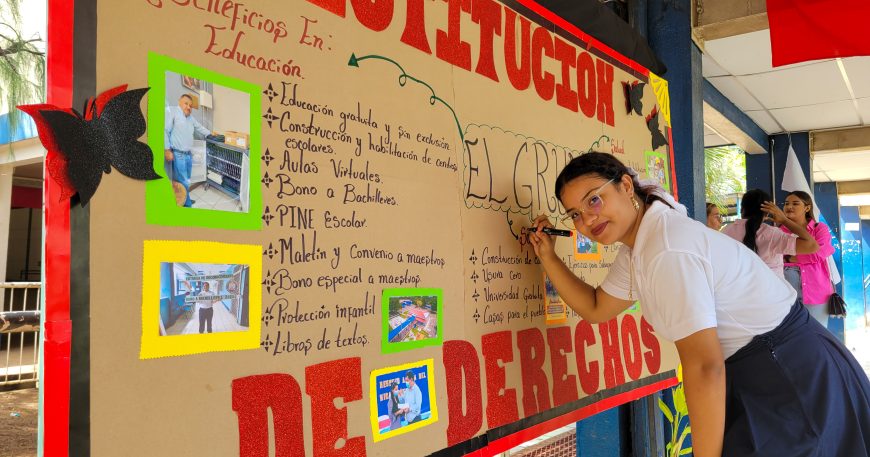 RESTITUCIÓN
Beneficios En:
Educación.
Educación gratuita y sin exclusión
Construcción y habilitación de centros
escolares.
Aulas Virtuales.
Bono a Bachilleres.
PINE Escolar.
Maletín y Convenio a maestros
Bono especial a maestros
Protección infantil
Libros de textos.
EL GRU
Salud
Construcción de
Usura Cero
Universidad Gratuita
Casas para el pueblo
DE DERECHOS